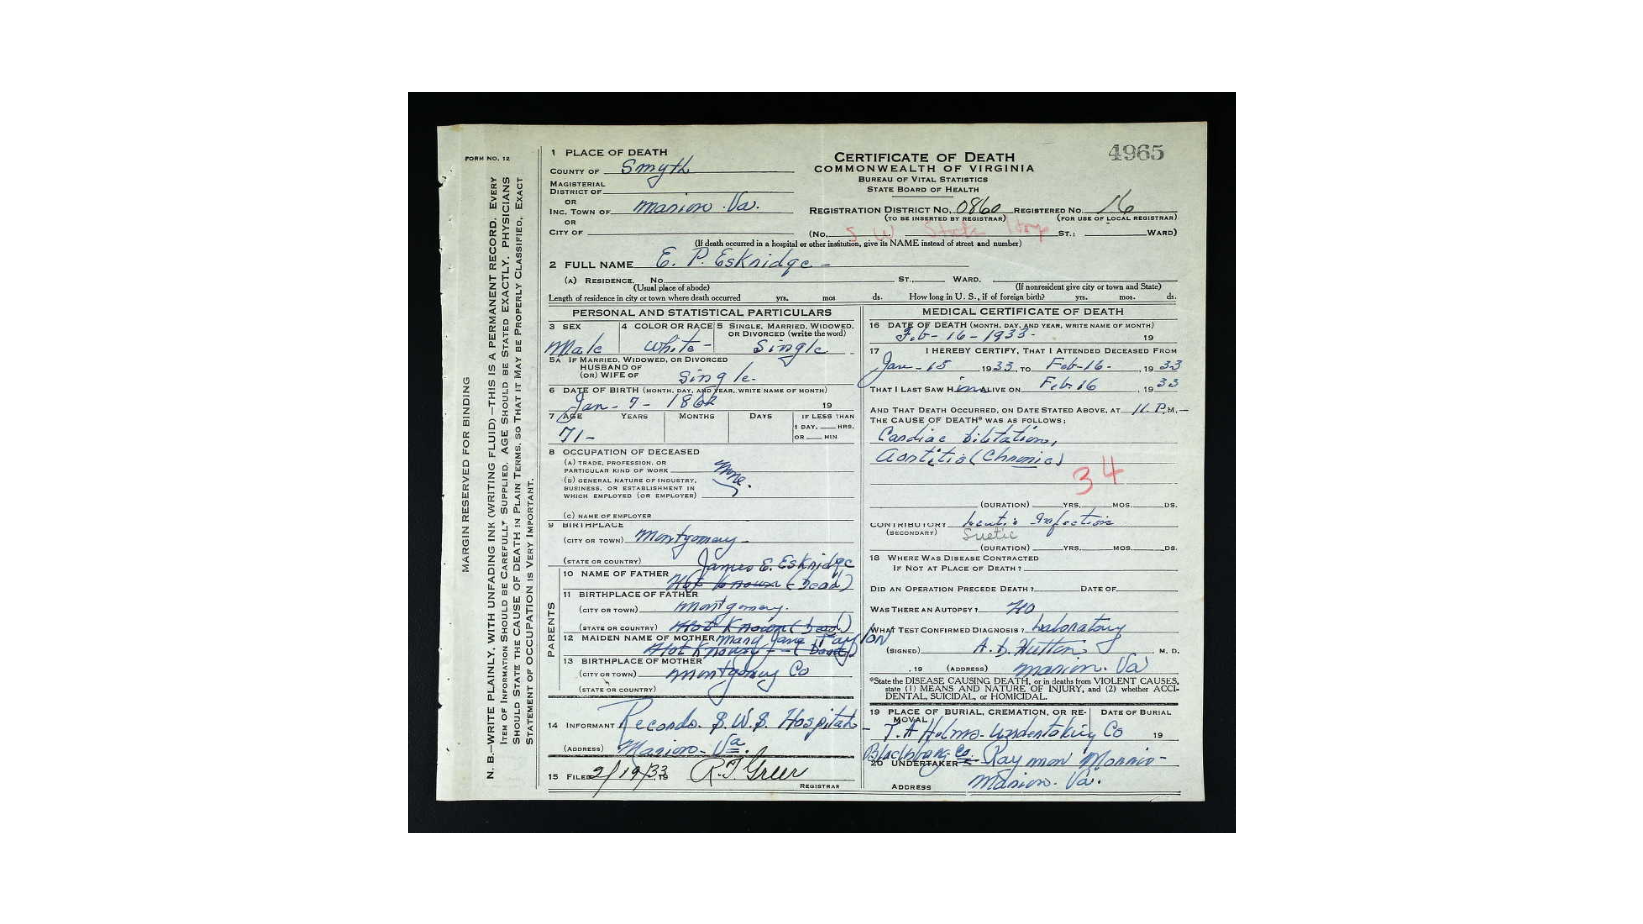 FORM NO. 12
MARGIN RESERVED FOR BINDING
N. B.—WRITE PLAINLY, WITH UNFADING INK (WRITING FLUID)—THIS IS A PERMANENT RECORD. EVERY
ITEM OF INFORMATION SHOULD BE CAREFULLY SUPPLIED. AGE SHOULD BE STATED EXACTLY. PHYSICIANS
SHOULD STATE THE CAUSE OF DEATH IN PLAIN TERMS, SO THAT IT MAY BE PROPERLY CLASSIFIED. EXACT
STATEMENT OF OCCUPATION IS VERY IMPORTANT.
1 PLACE OF DEATH
COUNTY OF Smyth
MAGISTERIAL
DISTRICT OF
OR
INC. TOWN OF Marion Va.
OR
CITY OF
CERTIFICATE OF DEATH
COMMONWEALTH OF VIRGINIA
BUREAU OF VITAL STATISTICS
STATE BOARD OF HEALTH
4965
REGISTRATION DISTRICT NO. 0860 REGISTERED NO. 16
(TO BE INSERTED BY REGISTRAR) (FOR USE OF LOCAL REGISTRAR)
(No. S W State Hosp ST.; WARD)
(If death occurred in a hospital or other institution, give its NAME instead of street and number)
2 FULL NAME E. P. Eskridge
(A) RESIDENCE. No. ST., WARD.
(Usual place of abode) (If nonresident give city or town and State)
Length of residence in city or town where death occurred yrs. mos. ds. How long in U. S., if of foreign birth? yrs. mos. ds.
PERSONAL AND STATISTICAL PARTICULARS
3 SEX
Male
4 COLOR OR RACE
White
5 SINGLE, MARRIED, WIDOWED,
OR DIVORCED (write the word)
Single
5A IF MARRIED, WIDOWED, OR DIVORCED
HUSBAND OF
(OR) WIFE OF Single
6 DATE OF BIRTH (MONTH, DAY, AND YEAR, WRITE NAME OF MONTH)
Jan-7-1862 19
7 AGE YEARS MONTHS DAYS IF LESS THAN
1 DAY, HRS.
OR MIN
71-
8 OCCUPATION OF DECEASED
(A) TRADE, PROFESSION, OR
PARTICULAR KIND OF WORK None.
(B) GENERAL NATURE OF INDUSTRY,
BUSINESS, OR ESTABLISHMENT IN
WHICH EMPLOYED (OR EMPLOYER)
(C) NAME OF EMPLOYER
9 BIRTHPLACE
(CITY OR TOWN) Montgomery
(STATE OR COUNTRY)
PARENTS
James E. Eskridge
10 NAME OF FATHER Not known (Dead)
11 BIRTHPLACE OF FATHER
(CITY OR TOWN) Montgomery.
(STATE OR COUNTRY) Not Known (Dead)
12 MAIDEN NAME OF MOTHER Mary Jane Taylor
Not Known (Dead)
13 BIRTHPLACE OF MOTHER
(CITY OR TOWN) Montgomery Co
(STATE OR COUNTRY)
14 INFORMANT Records. S.W.S. Hospital
(ADDRESS) Marion Va.
15 FILED 2/19/33 19 R.T. Greer
REGISTRAR
MEDICAL CERTIFICATE OF DEATH
16 DATE OF DEATH (MONTH, DAY, AND YEAR, WRITE NAME OF MONTH)
Feb-16-1933- 19
17 I HEREBY CERTIFY, THAT I ATTENDED DECEASED FROM
Jan-15 1933 TO Feb-16- 1933
THAT I LAST SAW HIM ALIVE ON Feb 16 1933
AND THAT DEATH OCCURRED, ON DATE STATED ABOVE, AT 11 P. M.
THE CAUSE OF DEATH* WAS AS FOLLOWS:
Cardiac Dilitation,
Aortitis (Chronic)
34
(DURATION) YRS. MOS. DS.
CONTRIBUTORY Infection
(SECONDARY)
(DURATION) YRS. MOS. DS.
18 WHERE WAS DISEASE CONTRACTED
IF NOT AT PLACE OF DEATH?
DID AN OPERATION PRECEDE DEATH? DATE OF
WAS THERE AN AUTOPSY? No
WHAT TEST CONFIRMED DIAGNOSIS? Laboratory
(SIGNED) Hutton M. D.
, 19 (ADDRESS) Marion Va
*State the DISEASE CAUSING DEATH, or in deaths from VIOLENT CAUSES,
state (1) MEANS AND NATURE OF INJURY, and (2) whether ACCI-
DENTAL, SUICIDAL, or HOMICIDAL.
19 PLACE OF BURIAL, CREMATION, OR RE-
MOVAL DATE OF BURIAL
Undertaking Co 19
20 UNDERTAKER
ADDRESS Marion Va.